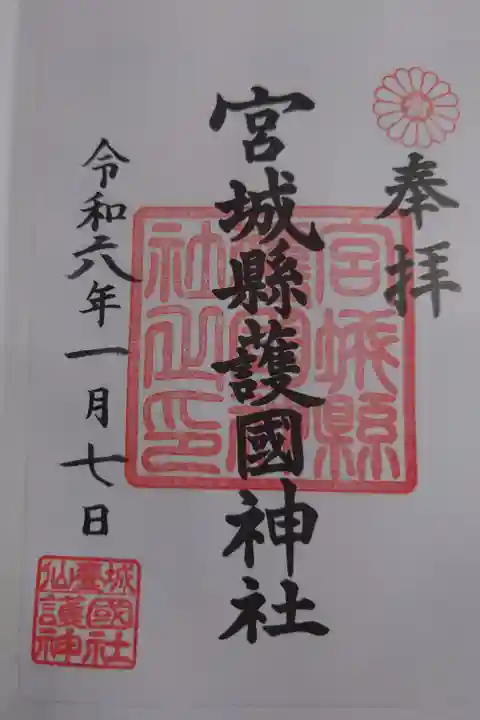 奉拝
宮城縣護國神社
宮城縣
護國神
社之印
令和六年一月七日
城國社
仙臺護神